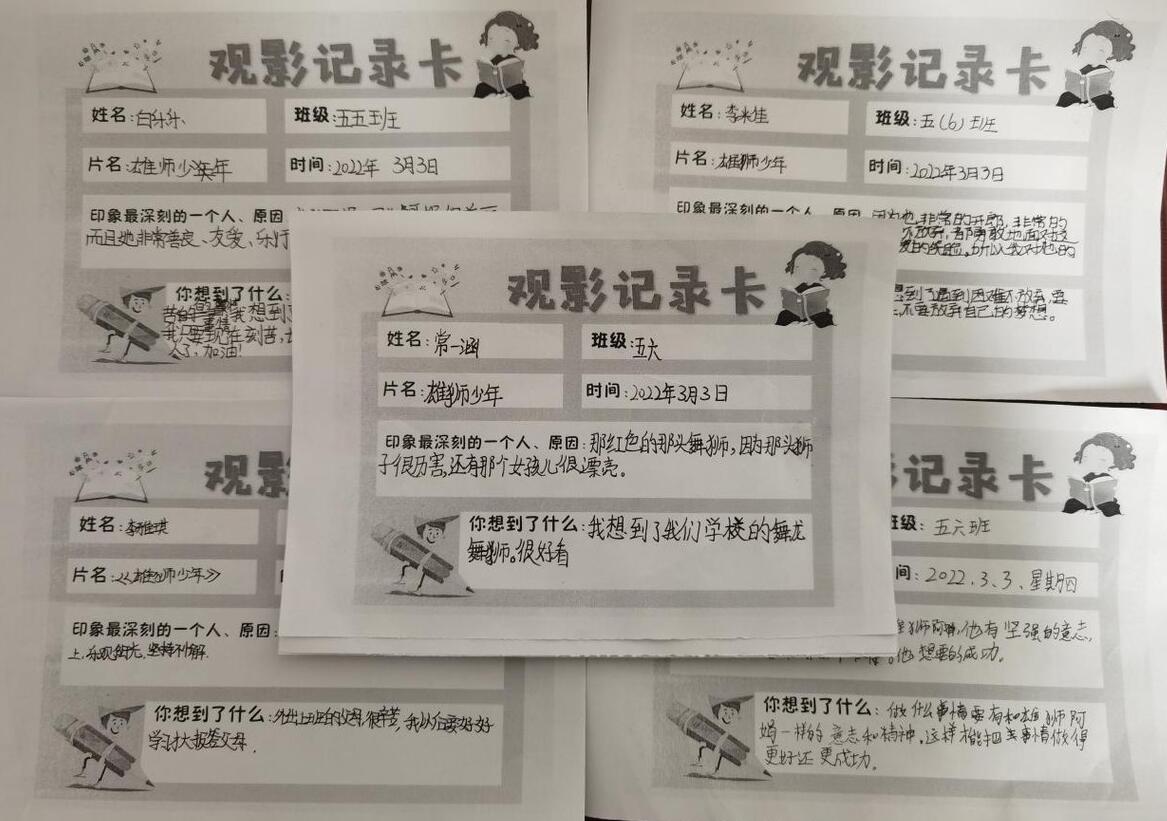 观影记录卡
姓名:白乐乐
班级:五五班
片名:雄师少年
时间:2022年 3月3日
印象最深刻的一个人、原因:
而且她非常善良、友爱、乐
你想到了什么:
我想到了
我只要现在刻苦,
人了,加油!
观影记录卡
姓名:李米佳
班级:五(6)班
片名:雄狮少年
时间:2022年3月3日
印象最深刻的一个人、原因:因为他,非常的开朗,非常的
不放弃,都勇敢地面对
的失败。所以我对他的
想到了遇到困难不放弃,要
不要放弃自己的梦想。
观影记录卡
姓名:常一涵
班级:五六
片名:雄狮少年
时间:2022年3月3日
印象最深刻的一个人、原因:那红色的那头舞狮,因为那头狮
子很历害,还有那个女孩儿很漂亮。
你想到了什么:我想到了我们学校的舞龙
舞狮。很好看
观影
姓名:李雅琪
片名:《雄狮少年》
印象最深刻的一个人、原因:
上,乐观阳光,坚持不懈.
你想到了什么:外出上班的父母,很辛苦,我以后要好好
学习长大报答父母.
记录卡
级:五六班
间:2022.3.3、星期四
他有坚强的意志,
他想要的成功.
你想到了什么:做什么事情要有和雄狮阿
娟一样的意志和精神,这样才能把事情做得
更好还更成功.